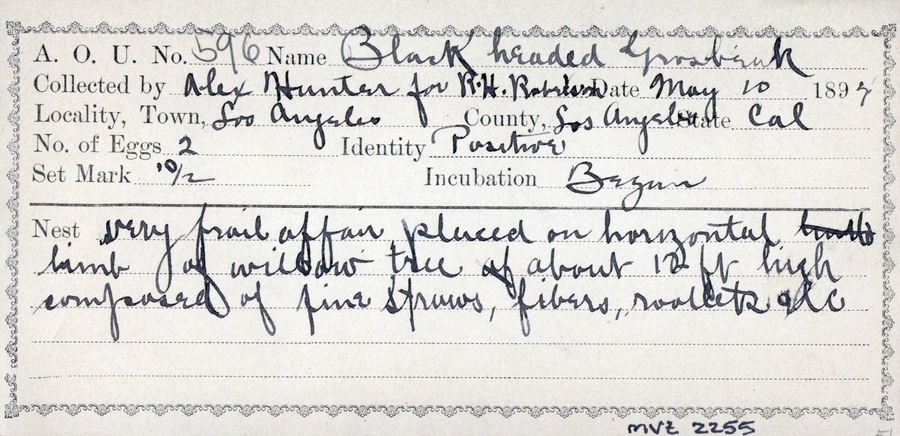 A. O. U. No. 596 Name Black headed Grosbeak
Collected by Alex Hunter for R.H. Robertson Date May 10 1897
Locality, Town, Los Angeles County, Los Angeles State Cal
No. of Eggs 2 Identity Positive
Set Mark 10/2 Incubation Began
Nest very frail affair, placed on horizontal
limb of willow tree of about 12 ft high
composed of fine straws, fibers, rootlets etc
MVZ 2255